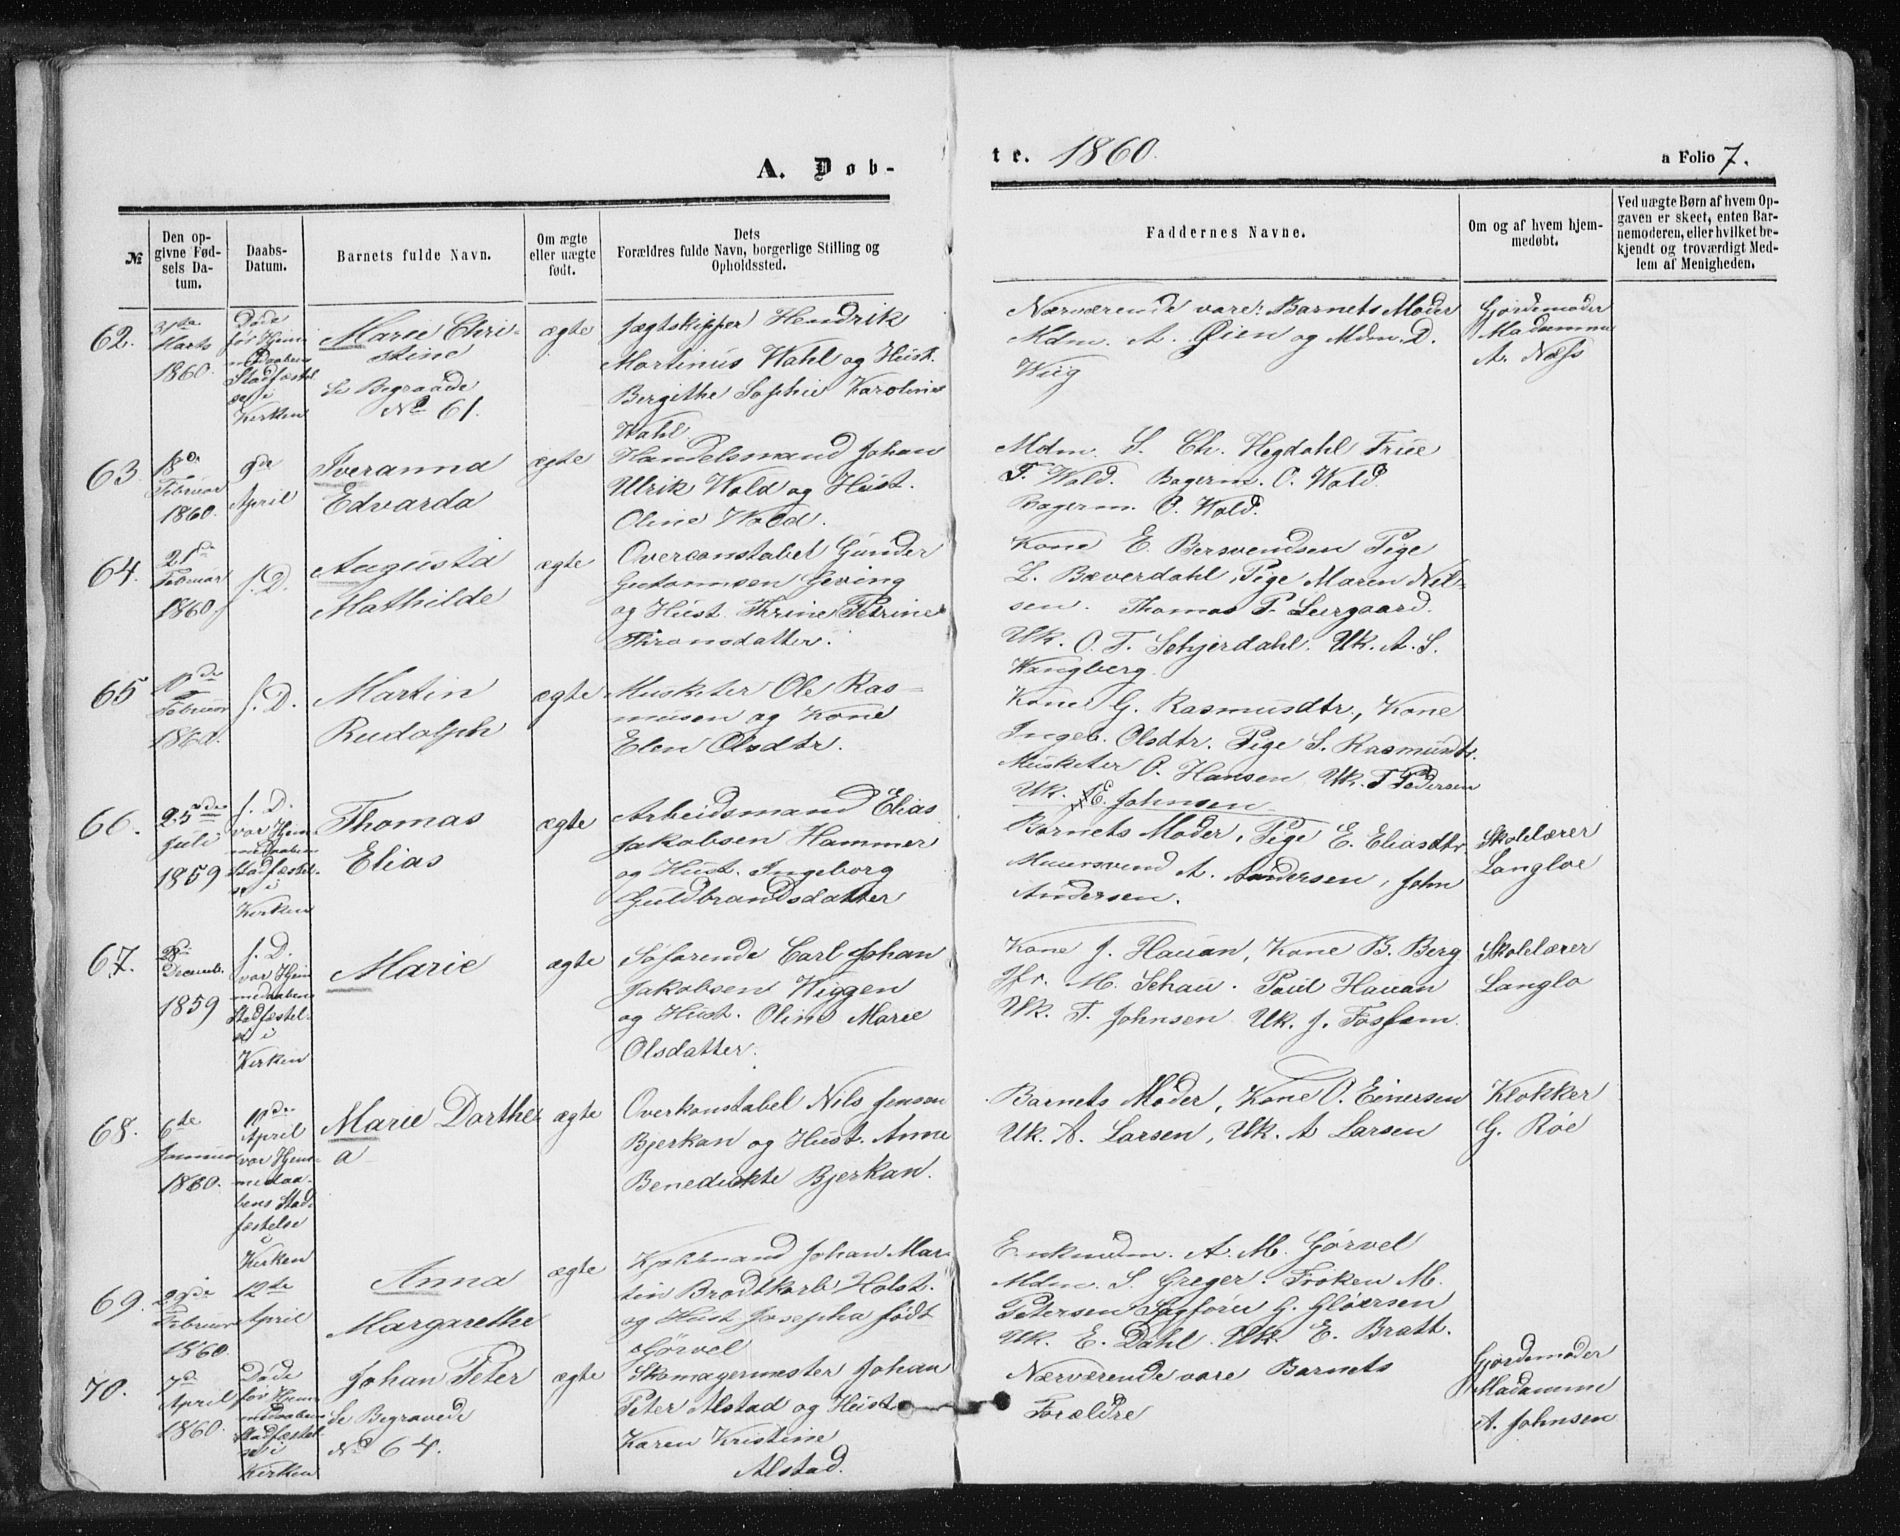 A. Døb-
te. 1860.
a Folio 7.
№
Den opgivne Fødsels Datum.
Daabs-Datum.
Barnets fulde Navn.
Om ægte eller uægte født.
Dets
Forældres fulde Navn, borgerlige Stilling og Opholdssted.
Faddernes Navne.
Om og af hvem hjemmedøbt.
Ved uægte Børn af hvem Opgaven er skeet, enten Barnemoderen, eller hvilket bekjendt og troværdigt Medlem af Menigheden.
62.
31te
Marts
1860.
Døde
før Hjem
medaabens
Stadfæstel
se i
Kirken
Marie Chri-
stine
Se Begravede
No 61.
ægte
Jægtskipper Hendrik
Martinus Wahl og Hust.
Bergithe Sophie Karoline
Wahl
Nærværende vare: Barnets Moder
Mdm. A. Øien og Mdm. D.
Wiig
Gjordemoder
Madamme
A. Næss
63.
18de
Februar
1860.
9de
April
Iveranna
Edvarda
ægte
Handelsmand Johan
Ulrik Wold og Hust.
Oline Wold.
Mdm. S. Ch. Hegdahl Frue
F. Wold. Bagerm. C. Wold
Bagerm. O. Wold.
64.
21de
Februar
1860.
s. D.
Augusta
Mathilde
ægte
Overconstabel Gunder
Guttormsen Geving
og Hust. Thrine Petrine
Thronsdatter.
Kone E. Bersvendsen Pige
L. Bæverdahl, Pige Maren Niel-
sen. Thomas P. Leergaard.
Uk. O. T. Schjerdahl. Uk. A. S.
Wangberg.
65
Februar
1860.
s. D.
Martin
Rudolph
ægte
Musketer Ole Ras-
musen og Kone
Elen Olsdtr.
Kone G. Rasmusdtr., Kone
Ingeb. Olsdtr. Pige S. Rasmusdtr.
Musketer O. Hansen Uk. T Pedersen
Uk. E. Johnsen
66.
25de
Juli
1859
s. D.
var Hjem
medaabens
Stadfæstel-
se i
Kirken
Thomas
Elias
ægte
Arbeidsmand Elias
Jakobsen Hammer
og Hust. Ingeborg
Guldbrandsdatter
Barnets Moder, Pige E. Eliasdtr.
Muursvend A. Andersen, John
Andersen.
Skolelærer
Langloe
67.
28de
Decemb.
1859
s. D.
var Hjem
medaabens
Stadfæstel-
se i
Kirken
Marie
ægte
Søfarende Carl Johan
Jakobsen Wiggen
og Hust. Oline Marie
Olsdatter.
Kone J. Hauan, Kone B. Berg
Jfr. M. Schau. Poul Hauan
Uk. T. Johnsen Uk. J. Fossem
Skolelærer
Langlo
68.
6te
Januar
1860.
11de
April
var Hjem-
medaa-
bens Stad-
fæstelse
i
Kirken
Marie Dorthe
a
ægte
Overkonstabel Nils Jensen
Bjerkan og Hust. Anne
Benedikte Bjerkan.
Barnets Moder, Kone O. Einersen
Uk. A. Larsen, Uk. A Larsen
Klokker
G. Røe
69.
Februar
1860.
12te
April
Anna
Margarethe
ægte
Kjøbmand Johan Mar-
tin Brodtkorb Holst.
og Hust Josepha født
Gørvel
Enkmdm. A. M. Gørvel
Mdm. S. Greger. Frøken M.
Petersen Sagfører G. Gløersen
Uk. E. Dahl. Uk. E. Bratt.
70.
7de
April
1860.
Døde
før Hjem
medaabens
Stadfæstel
se i
Kirken
Johan Peter
Se Begravede
No 64.
ægte
Skomagermester Johan
Peter Alstad og Hust
Karen Kristine
Alstad.
Nærværende vare Barnets
Forældre
Gjordemoder
Madamme
A. Johnsen